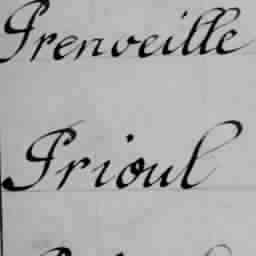 Prenveille
Prioul